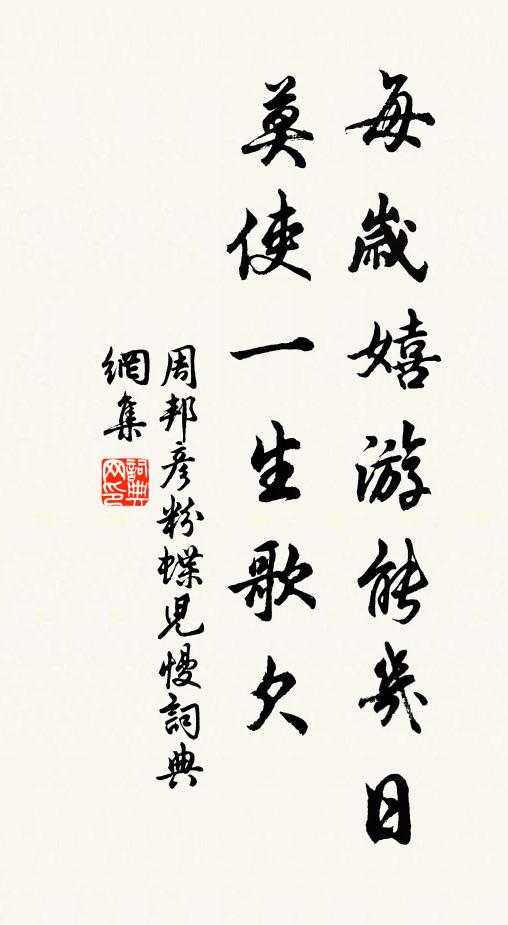 每歲嬉游能幾日
莫使一生歌欠
周邦彥粉蝶兒慢詞典
網集
詞典網印